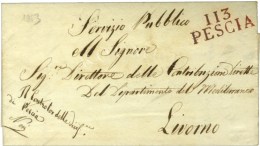 1813
113
PESCIA
Servizio Pubblico
All Signore
Sig.re Direttore delle Contribuzioni Dirette
Del Dipartimento del Mediterraneo
Livorno
Il Controlor delle
di Pescia